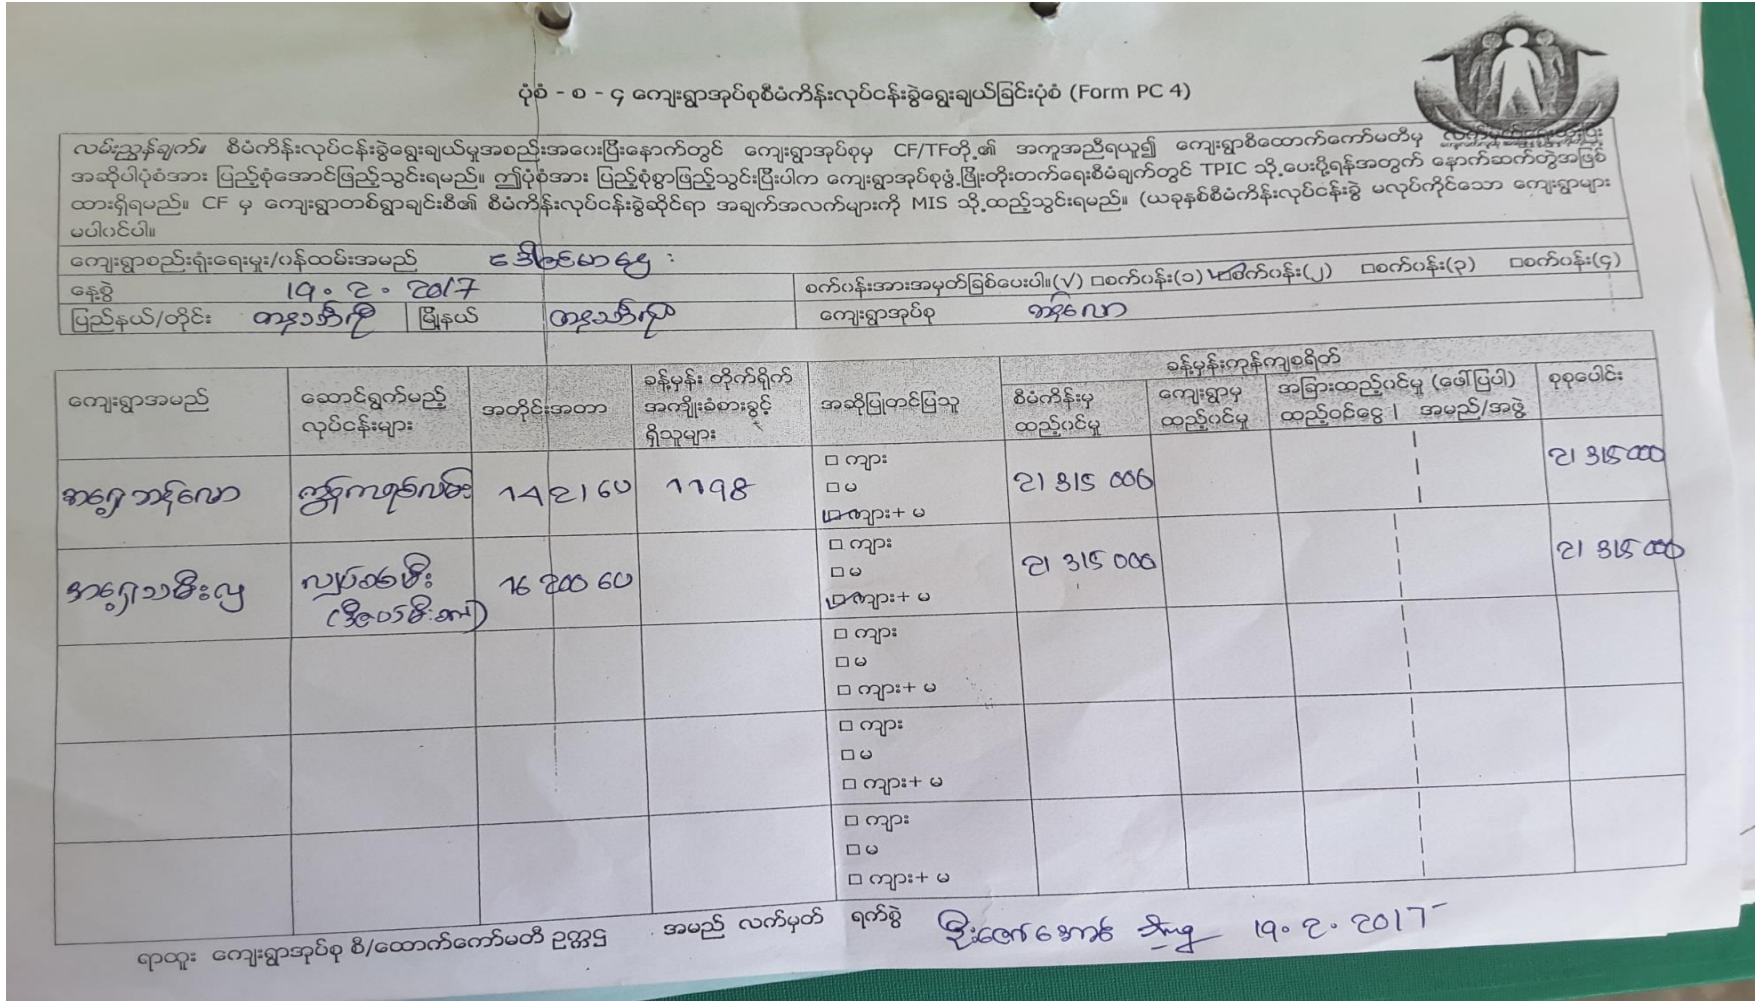 ပုံစံ - စ - ၄ ကျေးရွာအုပ်စုစီမံကိန်းလုပ်ငန်းခွဲရွေးချယ်ခြင်းပုံစံ (Form PC 4)
လမ်းညွှန်ချက်။ စီမံကိန်းလုပ်ငန်းခွဲရွေးချယ်မှုအစည်းအဝေးပြီးနောက်တွင် ကျေးရွာအုပ်စုမှ CF/TFတို့၏ အကူအညီရယူ၍ ကျေးရွာစီထောက်ကော်မတီမှ
အဆိုပါပုံစံအား ပြည့်စုံအောင်ဖြည့်သွင်းရမည်။ ဤပုံစံအား ပြည့်စုံစွာဖြည့်သွင်းပြီးပါက ကျေးရွာအုပ်စုဖွံ့ဖြိုးတိုးတက်ရေးစီမံချက်တွင် TPIC သို့ပေးပို့ရန်အတွက် နောက်ဆက်တွဲအဖြစ်
ထားရှိရမည်။ CF မှ ကျေးရွာတစ်ရွာချင်းစီ၏ စီမံကိန်းလုပ်ငန်းခွဲဆိုင်ရာ အချက်အလက်များကို MIS သို့ထည့်သွင်းရမည်။ (ယခုနှစ်စီမံကိန်းလုပ်ငန်းခွဲ မလုပ်ကိုင်သော ကျေးရွာများ
မပါဝင်ပါ။
ကျေးရွာစည်းရုံးရေးမှူး/ဝန်ထမ်းအမည်
နေ့စွဲ 19.2.2017 စက်ဝန်းအားအမှတ်ခြစ်ပေးပါ။(√) □စက်ဝန်း(၁) ☑စက်ဝန်း(၂) □စက်ဝန်း(၃) □စက်ဝန်း(၄)
ပြည်နယ်/တိုင်း တနသ်ာရီ မြို့နယ် တနသ်ာရီ ကျေးရွာအုပ်စု ဘန်လော
ကျေးရွာအမည် ဆောင်ရွက်မည့် လုပ်ငန်းများ အတိုင်းအတာ ခန့်မှန်း တိုက်ရိုက် အကျိုးခံစားခွင့် ရှိသူများ အဆိုပြုတင်ပြသူ ခန့်မှန်းကုန်ကျစရိတ်
စီမံကိန်းမှ ထည့်ဝင်မှု ကျေးရွာမှ ထည့်ဝင်မှု အခြားထည့်ဝင်မှု (ဖော်ပြပါ) ထည့်ဝင်ငွေ | အမည်/အဖွဲ့ စုစုပေါင်း
အရှေ့ဘန်လော ကွန်ကရစ်လမ်း 142160 1198 □ ကျား 21 315 000 21 315 000
□ မ
☑ ကျား+ မ
အရှေ့သမီးလှ လျှပ်စစ်မီး 16 200 60 □ ကျား 21 315 000 21 315 000
□ မ
☑ ကျား+ မ
□ ကျား
□ မ
□ ကျား+ မ
□ ကျား
□ မ
□ ကျား+ မ
□ ကျား
□ မ
□ ကျား+ မ
ရာထူး ကျေးရွာအုပ်စု စီ/ထောက်ကော်မတီ ဥက္ကဌ အမည် လက်မှတ် ရက်စွဲ 19.2.2017